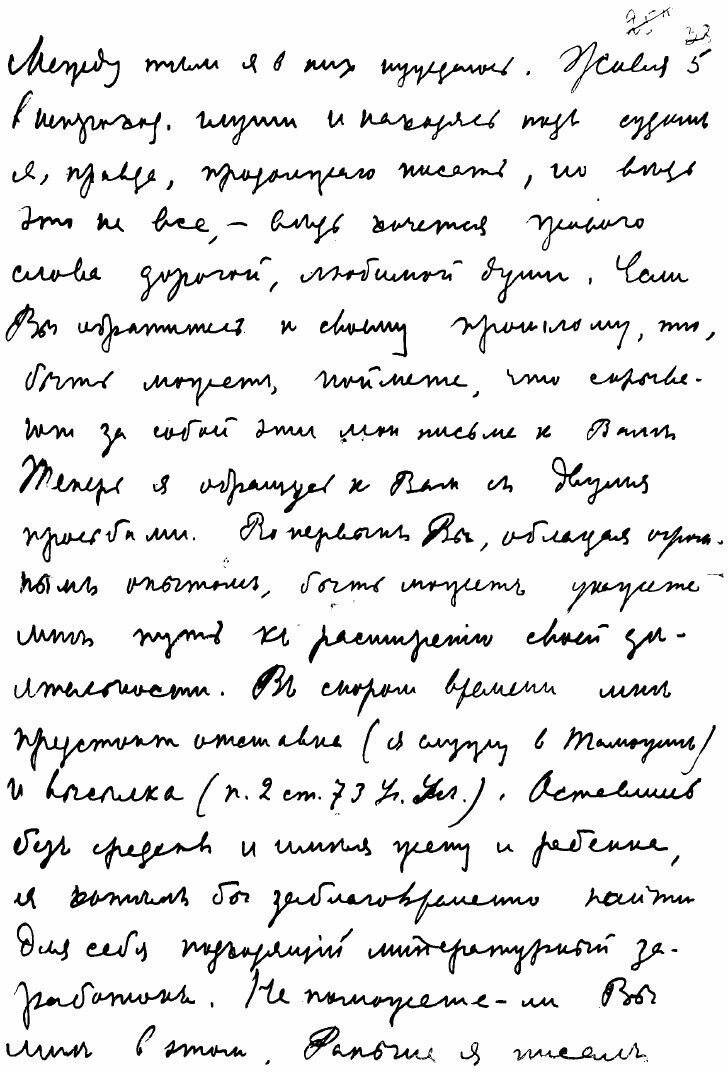 33
Между тем я в них нуждаюсь. Живя 5
в глуши и находясь подъ судомъ
я, правда, продолжаю писать, но ведь
это не все, – ведь хочется живого
слова дорогой, любимой души. Если
Вы обратитесь к своему прошлому, то,
быть можетъ, поймете, что скрыва-
ют за собой эти мои письма к Вамъ
Теперь я обращусь к Вам съ двумя
просьбами. Во первыхъ Вы, обладая огром-
нымъ опытомъ, быть можетъ укажете
мнѣ путь къ расширенію своей дѣ-
ятельности. Въ скором времени мнѣ
предстоит отставка (я служу в Таможнѣ)
и высылка (п. 2 ст. 73 У. Ул.). Оставшись
безъ средств и имѣя жену и ребенка,
я хотѣлъ бы заблаговременно найти
для себя подходящій литературный за-
работокъ. Не поможете-ли Вы
мнѣ в этом. Раньше я писалъ